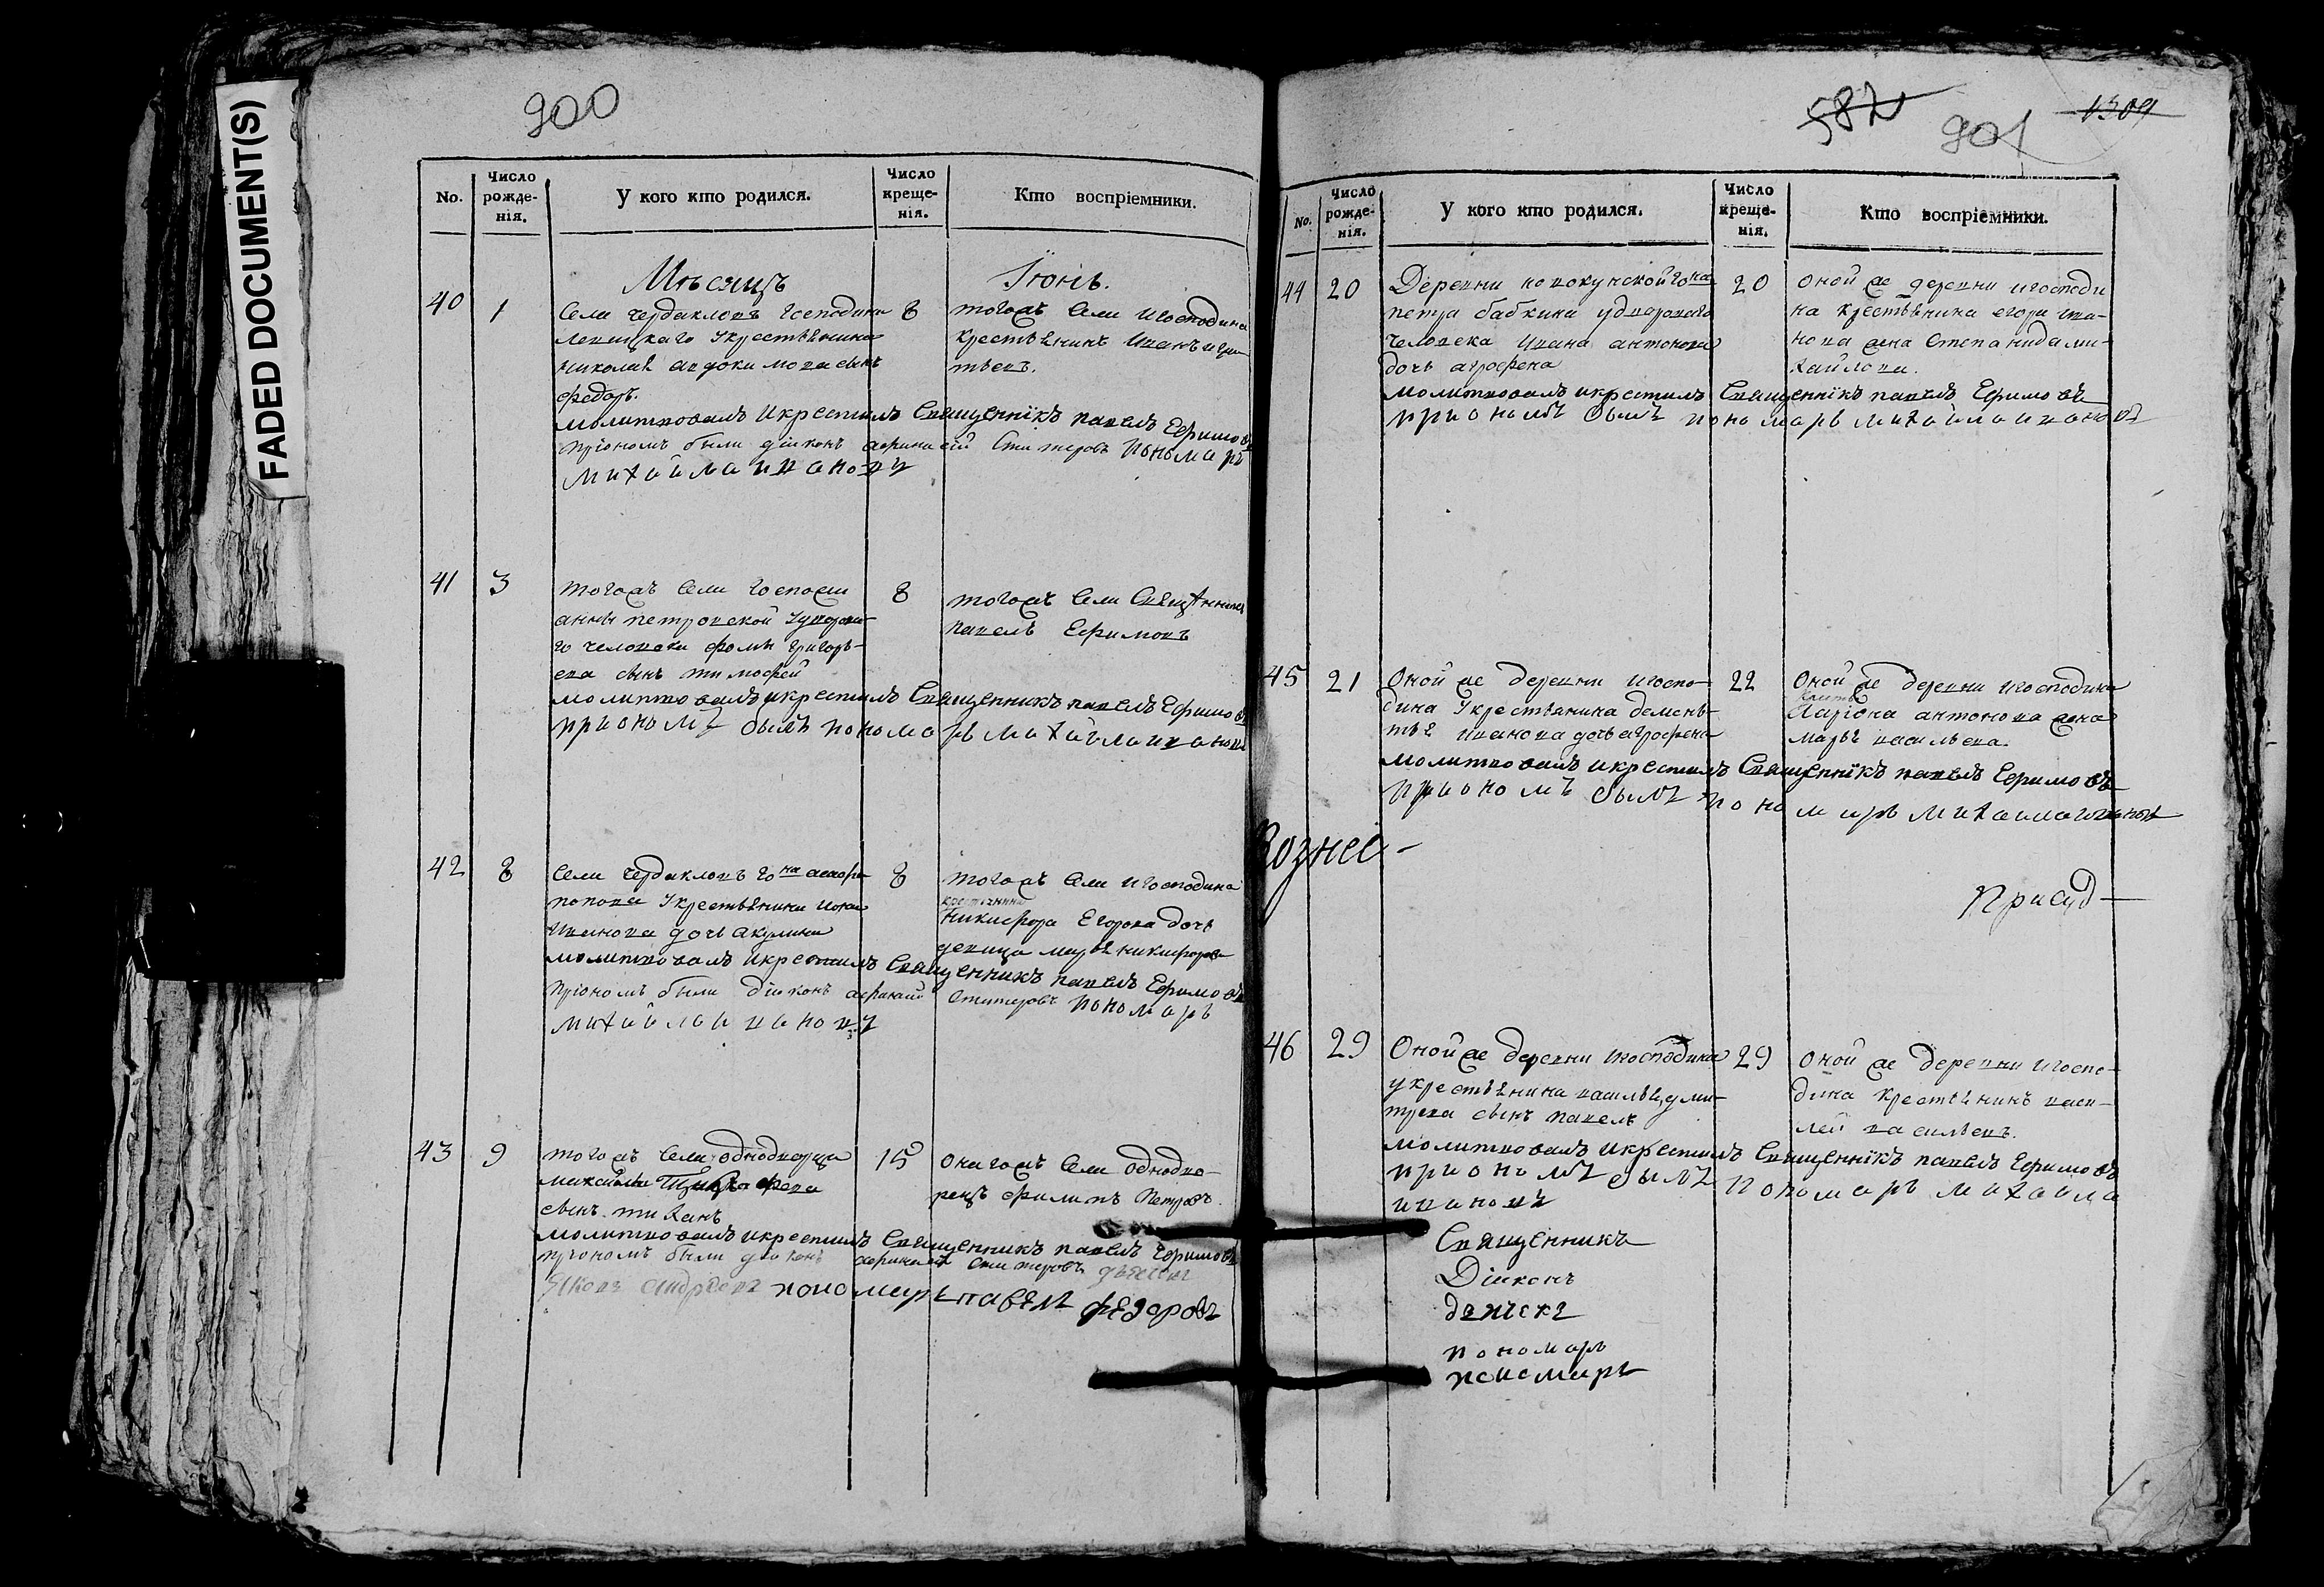 FADED DOCUMENT(S)
900
No.
Число рожде-нія.
У кого кто родился.
Число креще-нія.
Кто воспріемники.
Мѣсяцъ Іюнь.
40 1
Села Чердакловъ Господина
укрестьянина
сынъ
федоръ.
8
тогожъ села игосподина
крестьянинъ Иванъ
молитвовалъ икрестилъ Священникъ павелъ Ефимовъ
приономъ были діаконъ пономарь
михайла ивановъ
41 3
тогожъ села госпожи
анны петровской
го человека фомы григорь-
ева сынъ тимофей
8
тогожъ села Священникъ
павелъ Ефимовъ
молитвовалъ икрестилъ Священникъ павелъ Ефимовъ
приономъ былъ пономарь михайла ивановъ
42 8
села Чердакловъ го на
попова укрестьянина
иванова дочь акулина
8
тогожъ села игосподина
крестьянина
Никифора Егорова дочь
девица марья никифорова
молитвовалъ икрестилъ Священникъ павелъ Ефимовъ
приономъ были діаконъ пономарь
михайла ивановъ
43 9
тогожъ села однодворца
максима
сынъ тиханъ
15
онагожъ села однодво-
рецъ филипъ Петровъ.
молитвовалъ икрестилъ Священникъ павелъ Ефимовъ
приономъ были діаконъ дьячекъ
Яковъ андреевъ пономарь павелъ федоровъ
587
901
1309
No.
Число рожде-нія.
У кого кто родился.
Число креще-нія.
Кто воспріемники.
44 20
Деревни го на
петра бабкина удвороваго
человека ивана антонова
дочь агрофена
20
Оной же деревни игосподи
на крестьянина егора ива-
нова жена Степанида ми-
хайлова.
молитвовалъ икрестилъ Священнікъ павелъ Ефимовъ
приономъ былъ пономарь михайла ивановъ
45 21
Оной же деревни игоспо-
дина укрестьянина деменъ-
тья иванова дочь агрофена
22
Оной же деревни игосподина
Ларіона антонова жена
марья васильева.
молитвовалъ икрестилъ Священнікъ павелъ Ефимовъ
приономъ былъ пономарь михаила ивановъ
Вознес-
присуд-
46 29
Оной же деревни игосподина
укрестьянина василья дми-
трева сынъ павелъ
29
Оной же деревни игоспо-
дина крестьянинъ васи-
лей васильевъ.
молитвовалъ икрестилъ Священнікъ павелъ Ефимовъ
приономъ былъ пономарь михаила
ивановъ
Священникъ
Діаконъ
дьячекъ
пономарь
пономарь